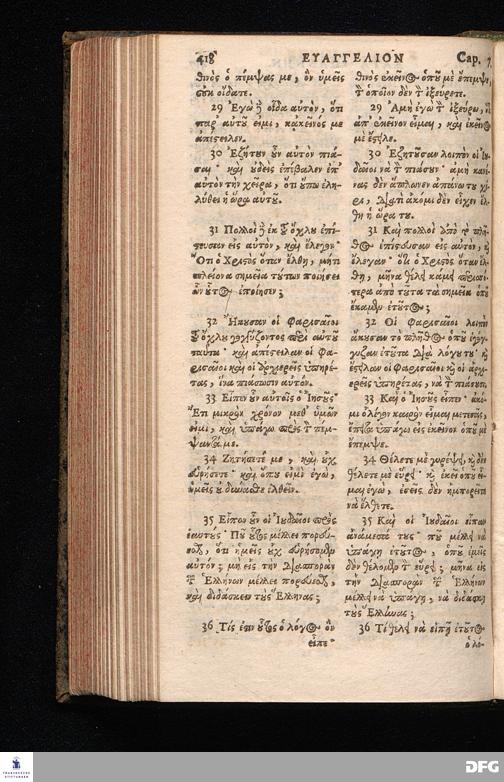 418 ΕΥΑΓΓΕΛΙΟΝ Cap. 7.
θινὸς ὁ πέμψας με, ὃν ὑμεῖς
οὐκ οἴδατε.
29 Ἐγὼ δὲ οἶδα αὐτὸν, ὅτι
παρ' αὐτοῦ εἰμι, κἀκεῖνός με
ἀπέστειλεν.
30 Ἐζήτουν οὖν αὐτὸν πιά-
σαι· καὶ οὐδεὶς ἐπέβαλεν ἐπ'
αὐτὸν τὴν χεῖρα, ὅτι οὔπω ἐλη-
λύθει ἡ ὥρα αὐτοῦ.
31 Πολλοὶ δὲ ἐκ τοῦ ὄχλου ἐπί-
στευσαν εἰς αὐτὸν, καὶ ἔλεγον·
Ὅτι ὁ Χριστὸς ὅταν ἔλθῃ, μήτι
πλείονα σημεῖα τούτων ποιήσει
ὧν οὗτος ἐποίησεν;
32 Ἤκουσαν οἱ Φαρισαῖοι
τοῦ ὄχλου γογγύζοντος περὶ αὐτοῦ
ταῦτα· καὶ ἀπέστειλαν οἱ Φα-
ρισαῖοι καὶ οἱ ἀρχιερεῖς ὑπηρέ-
τας, ἵνα πιάσωσιν αὐτόν.
33 Εἶπεν οὖν αὐτοῖς ὁ Ἰησοῦς·
Ἔτι μικρὸν χρόνον μεθ' ὑμῶν
εἰμι, καὶ ὑπάγω πρὸς τὸν πέμ-
ψαντά με.
34 Ζητήσετέ με, καὶ οὐχ
εὑρήσετε· καὶ ὅπου εἰμὶ ἐγὼ,
ὑμεῖς οὐ δύνασθε ἐλθεῖν.
35 Εἶπον οὖν οἱ Ἰουδαῖοι πρὸς
ἑαυτούς· Ποῦ οὗτος μέλλει πορεύε-
σθαι, ὅτι ἡμεῖς οὐχ εὑρήσομεν
αὐτόν; μὴ εἰς τὴν Διασπορὰν
τῶν Ἑλλήνων μέλλει πορεύεσθαι,
καὶ διδάσκειν τοὺς Ἕλληνας;
36 Τίς ἐστιν οὗτος ὁ λόγος ὃν
εἶπε·
θινὸς ἐκεῖνος ὁποῦ μὲ ἔπεμψε,
τὸν ὁποῖον δὲν τὸν ἐξεύρετε.
29 Ἀμὴ ἐγὼ τὸν ἐξεύρω, ὅτι
ἀπ' ἐκεῖνον εἶμαι, καὶ ἐκεῖνος
μὲ ἔστειλε.
30 Ἐζητοῦσαν λοιπὸν οἱ Ἰου-
δαῖοι νὰ τὸν πιάσουν· ἀμὴ κανέ-
νας δὲν ἅπλωνεν ἀπάνω του χέ-
ρι, διατὶ ἀκόμι δὲν εἶχεν ἔλ-
θῃ ἡ ὥρα του.
31 Καὶ πολλοὶ ἀπὸ τὸ πλῆ-
θος ἐπίστευσαν εἰς αὐτὸν, καὶ
ἔλεγαν· ὅτι ὁ Χριστὸς ὅταν ἔλ-
θῃ, μήνα θέλῃ κάμῃ περισσό-
τερα ἀπὸ τοῦτα τὰ σημεῖα ὁποῦ
ἔκαμεν ἐτοῦτος;
32 Οἱ Φαρισαῖοι λοιπὸν
ἄκουσαν τὸ πλῆθος ὁποῦ ἐγόγ-
γυζαν ἐτοῦτα διὰ λόγου του· καὶ
ἔστειλαν οἱ Φαρισαῖοι καὶ οἱ ἀρχι-
ερεῖς ὑπηρέτας, νὰ τὸν πιάσουν.
33 Καὶ ὁ Ἰησοῦς εἶπεν· ἀκό-
μι ὀλίγον καιρὸν εἶμαι μετ' ἐσᾶς,
ἔπειτα ὑπάγω εἰς ἐκεῖνον ὁποῦ μὲ
ἔπεμψε.
34 Θέλετε μὲ γυρέψῃ, καὶ δὲν
θέλετε μὲ εὕρῃ· καὶ ἐκεῖ ὁποῦ εἶ-
μαι ἐγὼ, ἐσεῖς δὲν ἠμπορεῖτε
νὰ ἔλθετε.
35 Καὶ οἱ Ἰουδαῖοι εἶπαν
ἀνάμεσά τους· ποῦ μέλλῃ νὰ
ὑπάγῃ ἐτοῦτος, ὁποῦ ἐμεῖς
δὲν θέλομεν τὸν εὕρῃ; μήνα εἰς
τὴν Διασπορὰν τῶν Ἑλλήνων
μέλλῃ νὰ ὑπάγῃ, νὰ διδάσκῃ
τοὺς Ἕλληνας;
36 Τί θέλῃ νὰ εἰπῇ ἐτοῦτος
ὁ λό-
DFG